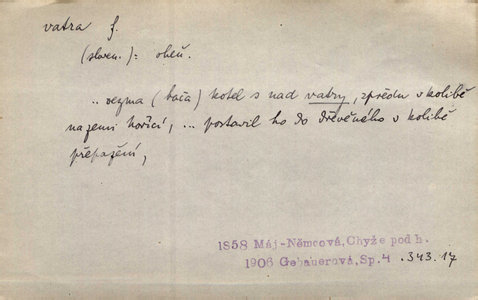 vatra f.
(sloven.): oheň.
.. vezma (bača) kotel s nad vatry, zprědu v kolibě
na zemi hořící, ... postavil ho do dřevěného v kolibě
přepažení,
1858 Máj-Němcová, Chyže pod h.
1906 Gebauerová, Sp. 4 .343.17